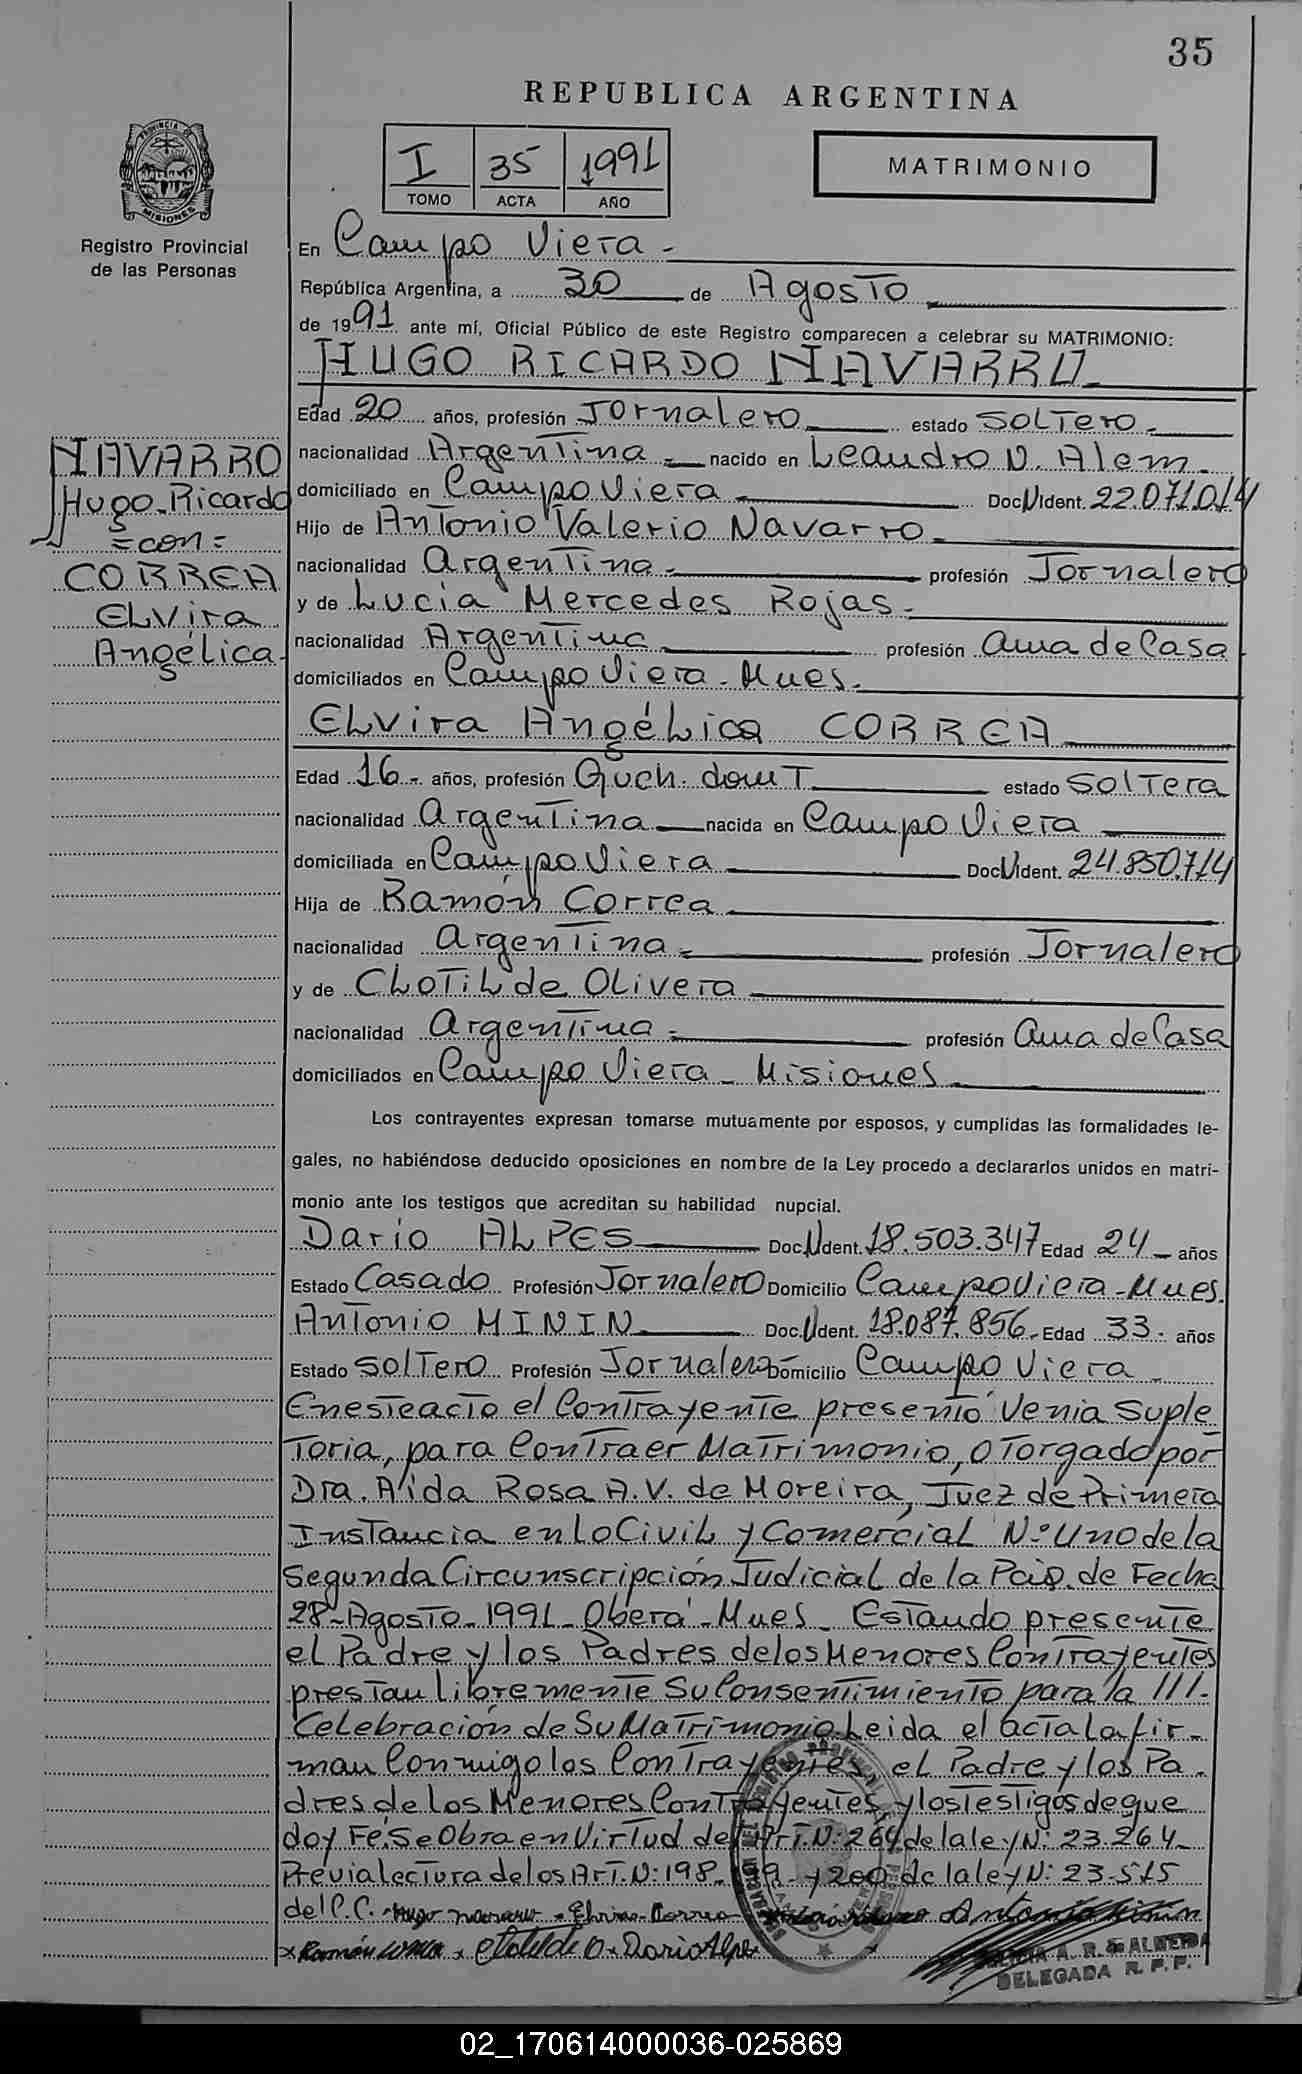 35
REPUBLICA ARGENTINA
PROVINCIA DE
MISIONES
Registro Provincial
de las Personas
I 35 1991
TOMO ACTA AÑO
MATRIMONIO
En Campo Viera -
República Argentina, a 30 de Agosto
de 1991 ante mí, Oficial Público de este Registro comparecen a celebrar su MATRIMONIO:
HUGO RICARDO NAVARRO
Edad 20 años, profesión Jornalero estado Soltero
NAVARRO
Hugo Ricardo
=con=
CORREA
ELVira
Angélica
nacionalidad Argentina nacido en Leandro N. Alem
domiciliado en Campo Viera Doc N Ident. 22.071.014
Hijo de Antonio Valerio Navarro
nacionalidad argentina profesión Jornalero
y de Lucia Mercedes Rojas
nacionalidad Argentina profesión ama de Casa
domiciliados en Campo Viera - Mnes.
ELVira Angélica CORREA
Edad 16 años, profesión Queh. domt estado Soltera
nacionalidad argentina nacida en Campo Viera
domiciliada en Campo Viera Doc N Ident. 24.850.714
Hija de Ramón Correa
nacionalidad argentina profesión Jornalero
y de Clotilde Olivera
nacionalidad argentina profesión ama de Casa
domiciliados en Campo Viera - Misiones
Los contrayentes expresan tomarse mutuamente por esposos, y cumplidas las formalidades le-
gales, no habiéndose deducido oposiciones en nombre de la Ley procedo a declararlos unidos en matri-
monio ante los testigos que acreditan su habilidad nupcial.
Dario ALPES Doc. N Ident. 18.503.347 Edad 24 años
Estado Casado Profesión Jornalero Domicilio Campo Viera - Mnes.
Antonio MININ Doc. N Ident. 18.087.856 Edad 33 años
Estado Soltero Profesión Jornalero Domicilio Campo Viera
En este acto el Contrayente presentó Venia Suple
toria, para Contraer Matrimonio, otorgado por
Dra. Aida Rosa A.V. de Moreira, Juez de Primera
Instancia en lo Civil y Comercial N° Uno de la
Segunda Circunscripción Judicial de la Pcia. de Fecha
28-Agosto-1991-Oberá-Mnes. Estando presente
el Padre y los Padres de los Menores Contrayentes
prestan libremente su Consentimiento para la ///-
Celebración de su Matrimonio Leida el acta la fir-
man Conmigo los Contrayentes, el Padre y los Pa-
dres de los Menores Contrayentes, y los testigos de que
doy Fé. Se Obra en Virtud del Art. N: 264 de la ley N: 23.264-
Previa lectura de los Art. N: 198-199-y 200 de la ley N: 23.515
del C.C. Hugo Navarro - Elvira Correa Antonio Minin
x Ramón Correa x Clotilde O x Dario Alpe x
A. R. de ALMEIDA
DELEGADA R. P. P.
02_170614000036-025869